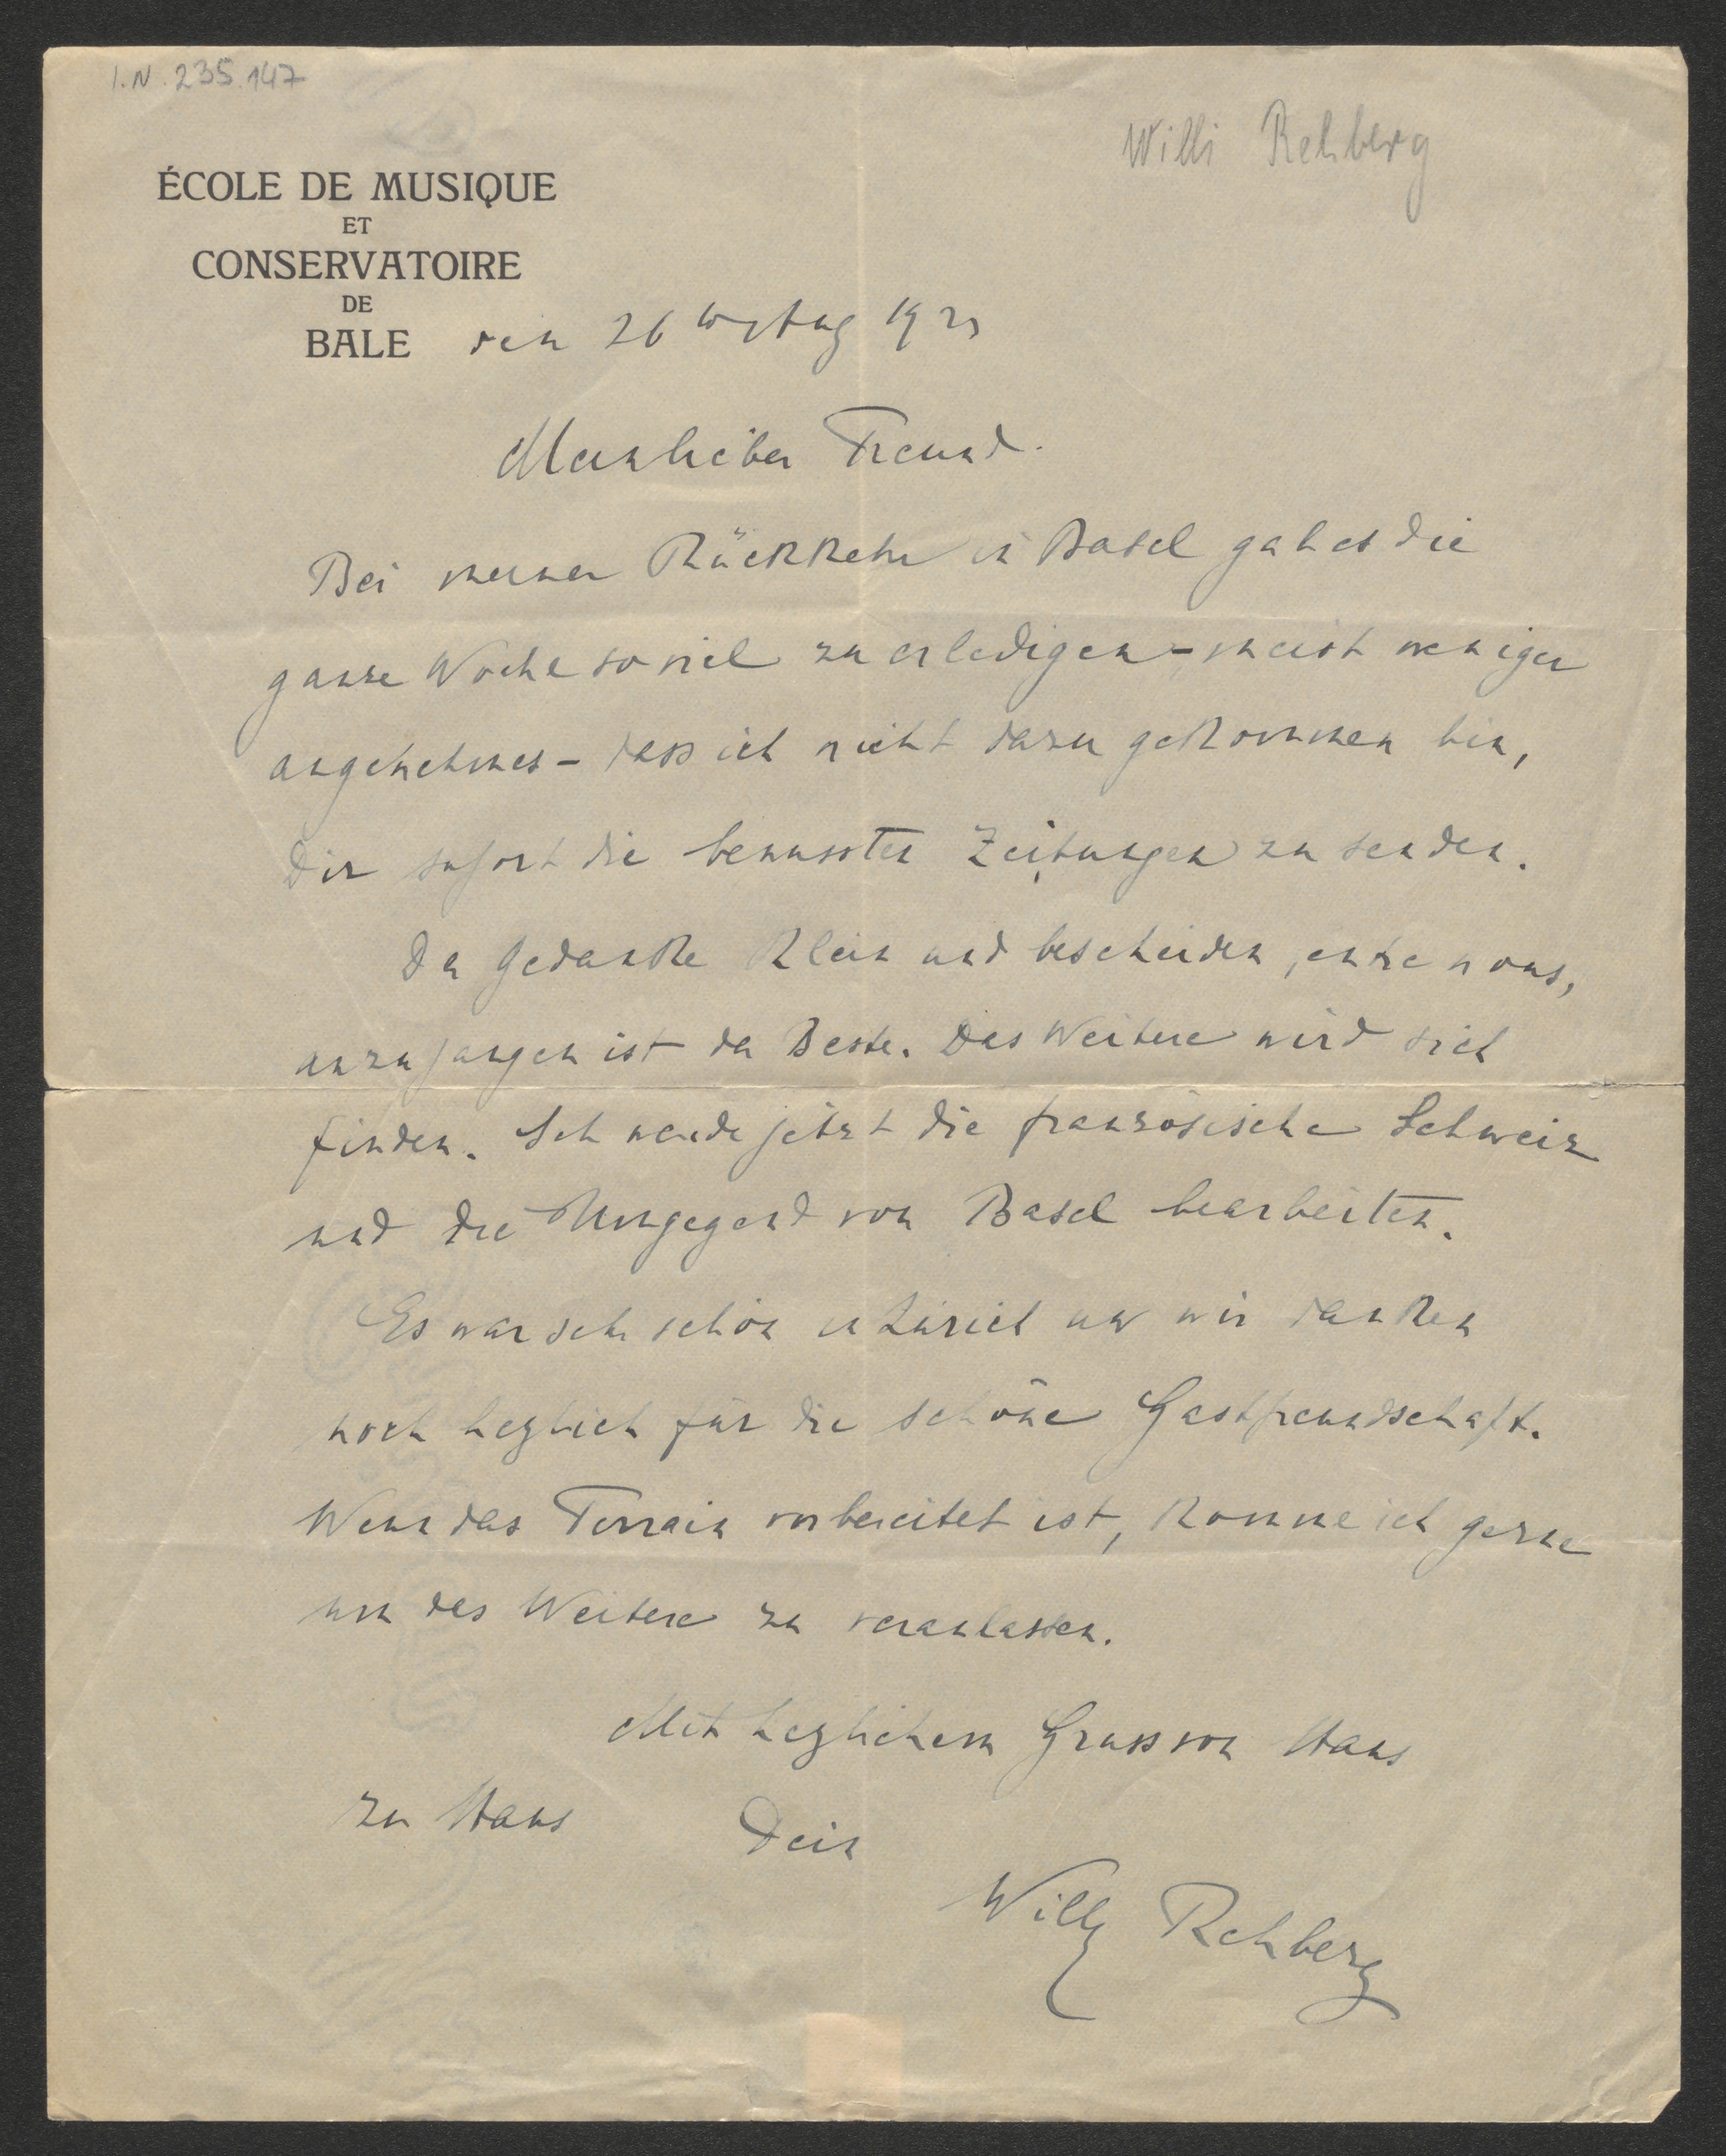 I.N. 235.147
Willi Rehberg
ÉCOLE DE MUSIQUE
ET
CONSERVATOIRE
DE
BALE den 26 19
Mein lieber Freund.
Bei meiner Rückkehr in Basel gab es die
ganze Woche so viel zu erledigen - meist weniger
angenehmes - dass ich nicht dazu gekommen bin,
Dir sofort die bewussten Zeitungen zu senden.
Der Gedanke klein und bescheiden, entre nous,
anzufangen ist der Beste. Das Weitere wird sich
finden. Ich werde jetzt die französische Schweiz
und die Umgegend von Basel bearbeiten.
Es war sehr schön in Zürich und wir danken
noch herzlich für die schöne Gastfreundschaft.
Wenn das Terrain vorbereitet ist, komme ich gerne
um das Weitere zu veranlassen.
Mit herzlichem Gruss von Haus
zu Haus Dein
Willy Rehberg